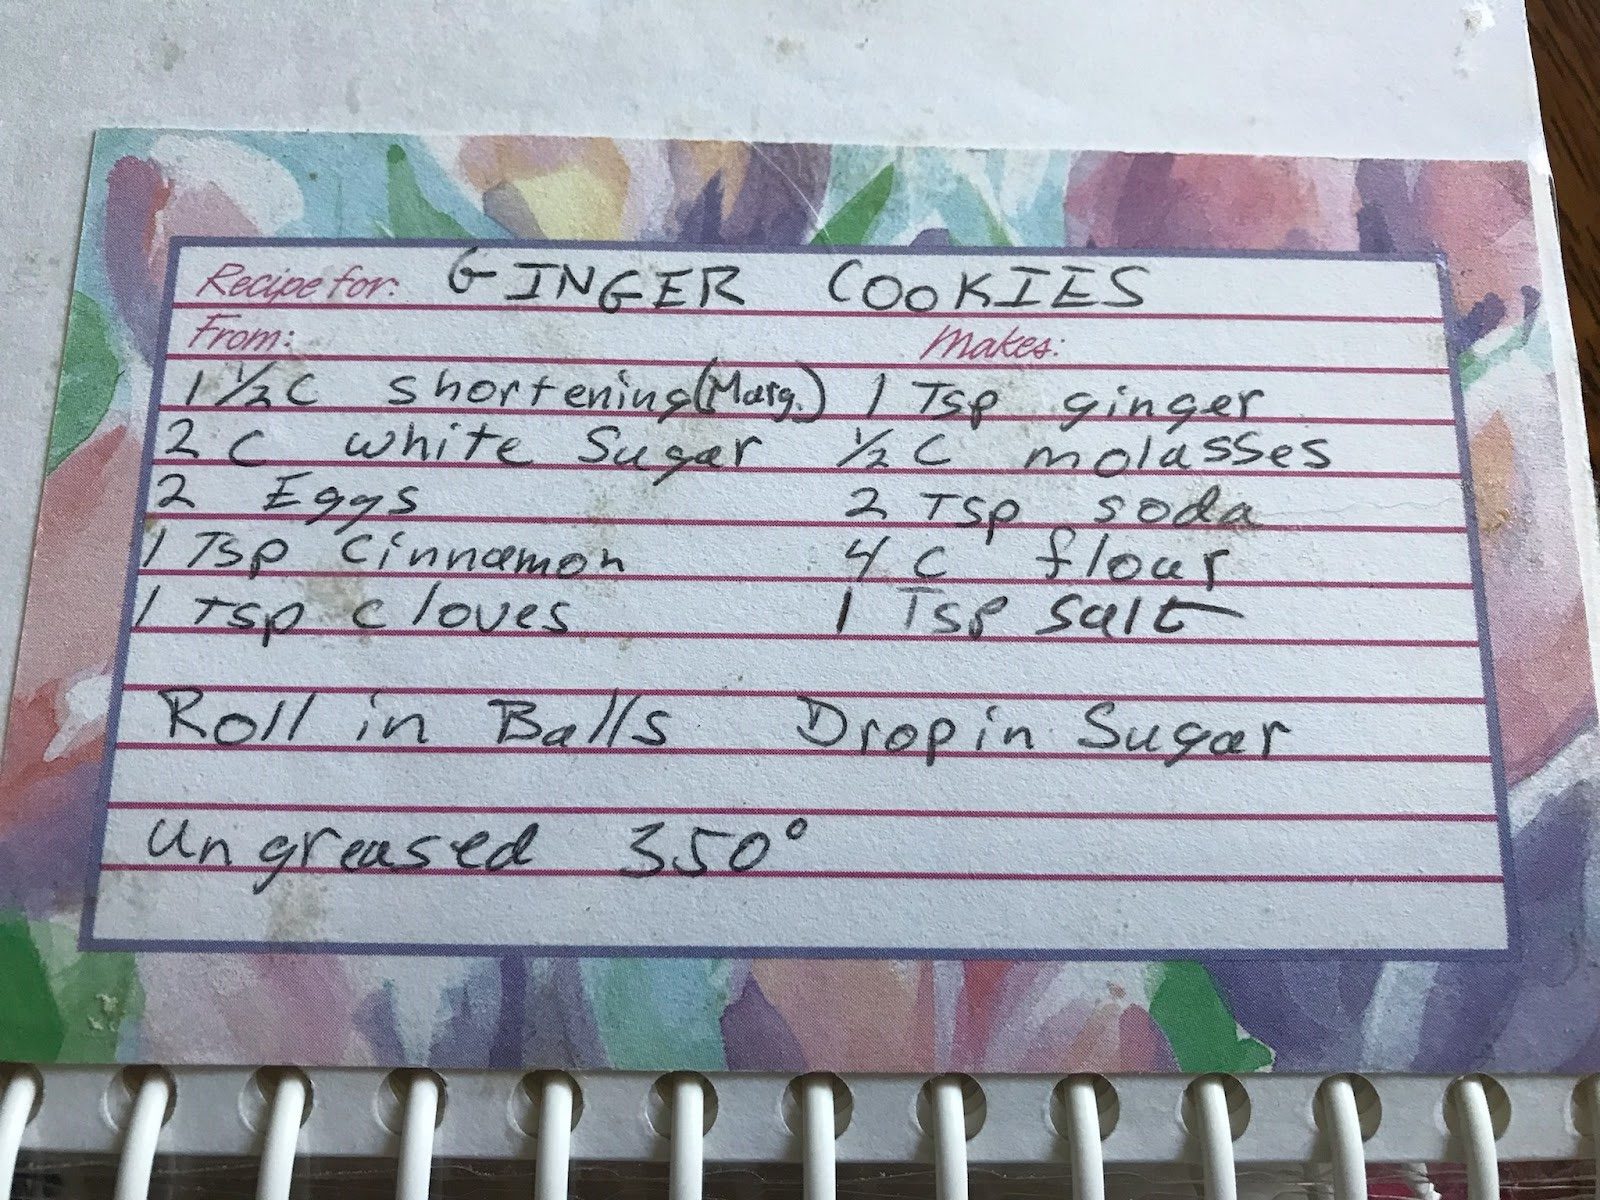 Recipe for: GINGER COOKIES
From: Makes:
1 1/2 C shortening (Marg.) 1 Tsp ginger
2 C white Sugar 1/2 C molasses
2 Eggs 2 Tsp soda
1 Tsp cinnamon 4 C flour
1 Tsp cloves 1 Tsp salt
Roll in Balls Drop in Sugar
ungreased 350°